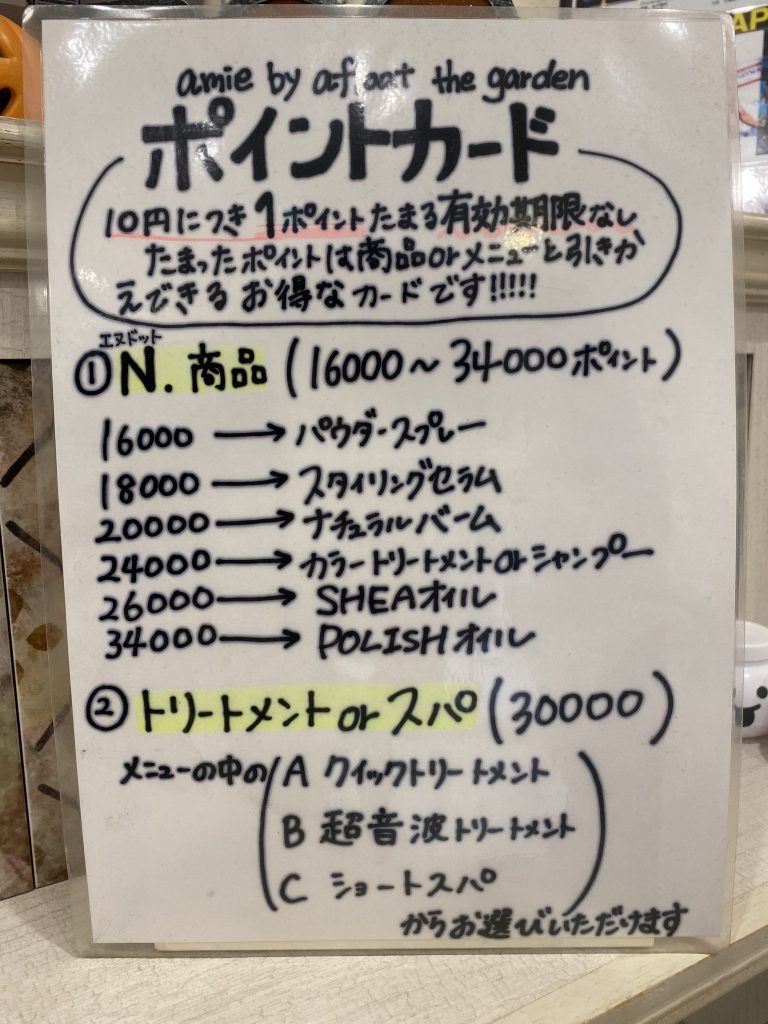 amie by afloat the garden
ポイントカード
10円につき1ポイントたまる有効期限なし
たまったポイントは商品orメニューと引きか
えできるお得なカードです!!!!!
エヌドット
①N.商品(16000〜34000ポイント)
16000→パウダースプレー
18000→スタイリングセラム
20000→ナチュラルバーム
24000→カラートリートメントorシャンプー
26000→SHEAオイル
34000→POLISHオイル
②トリートメントorスパ(30000)
メニューの中の(A クイックトリートメント
B 超音波トリートメント
C ショートスパ)
からお選びいただけます
AP